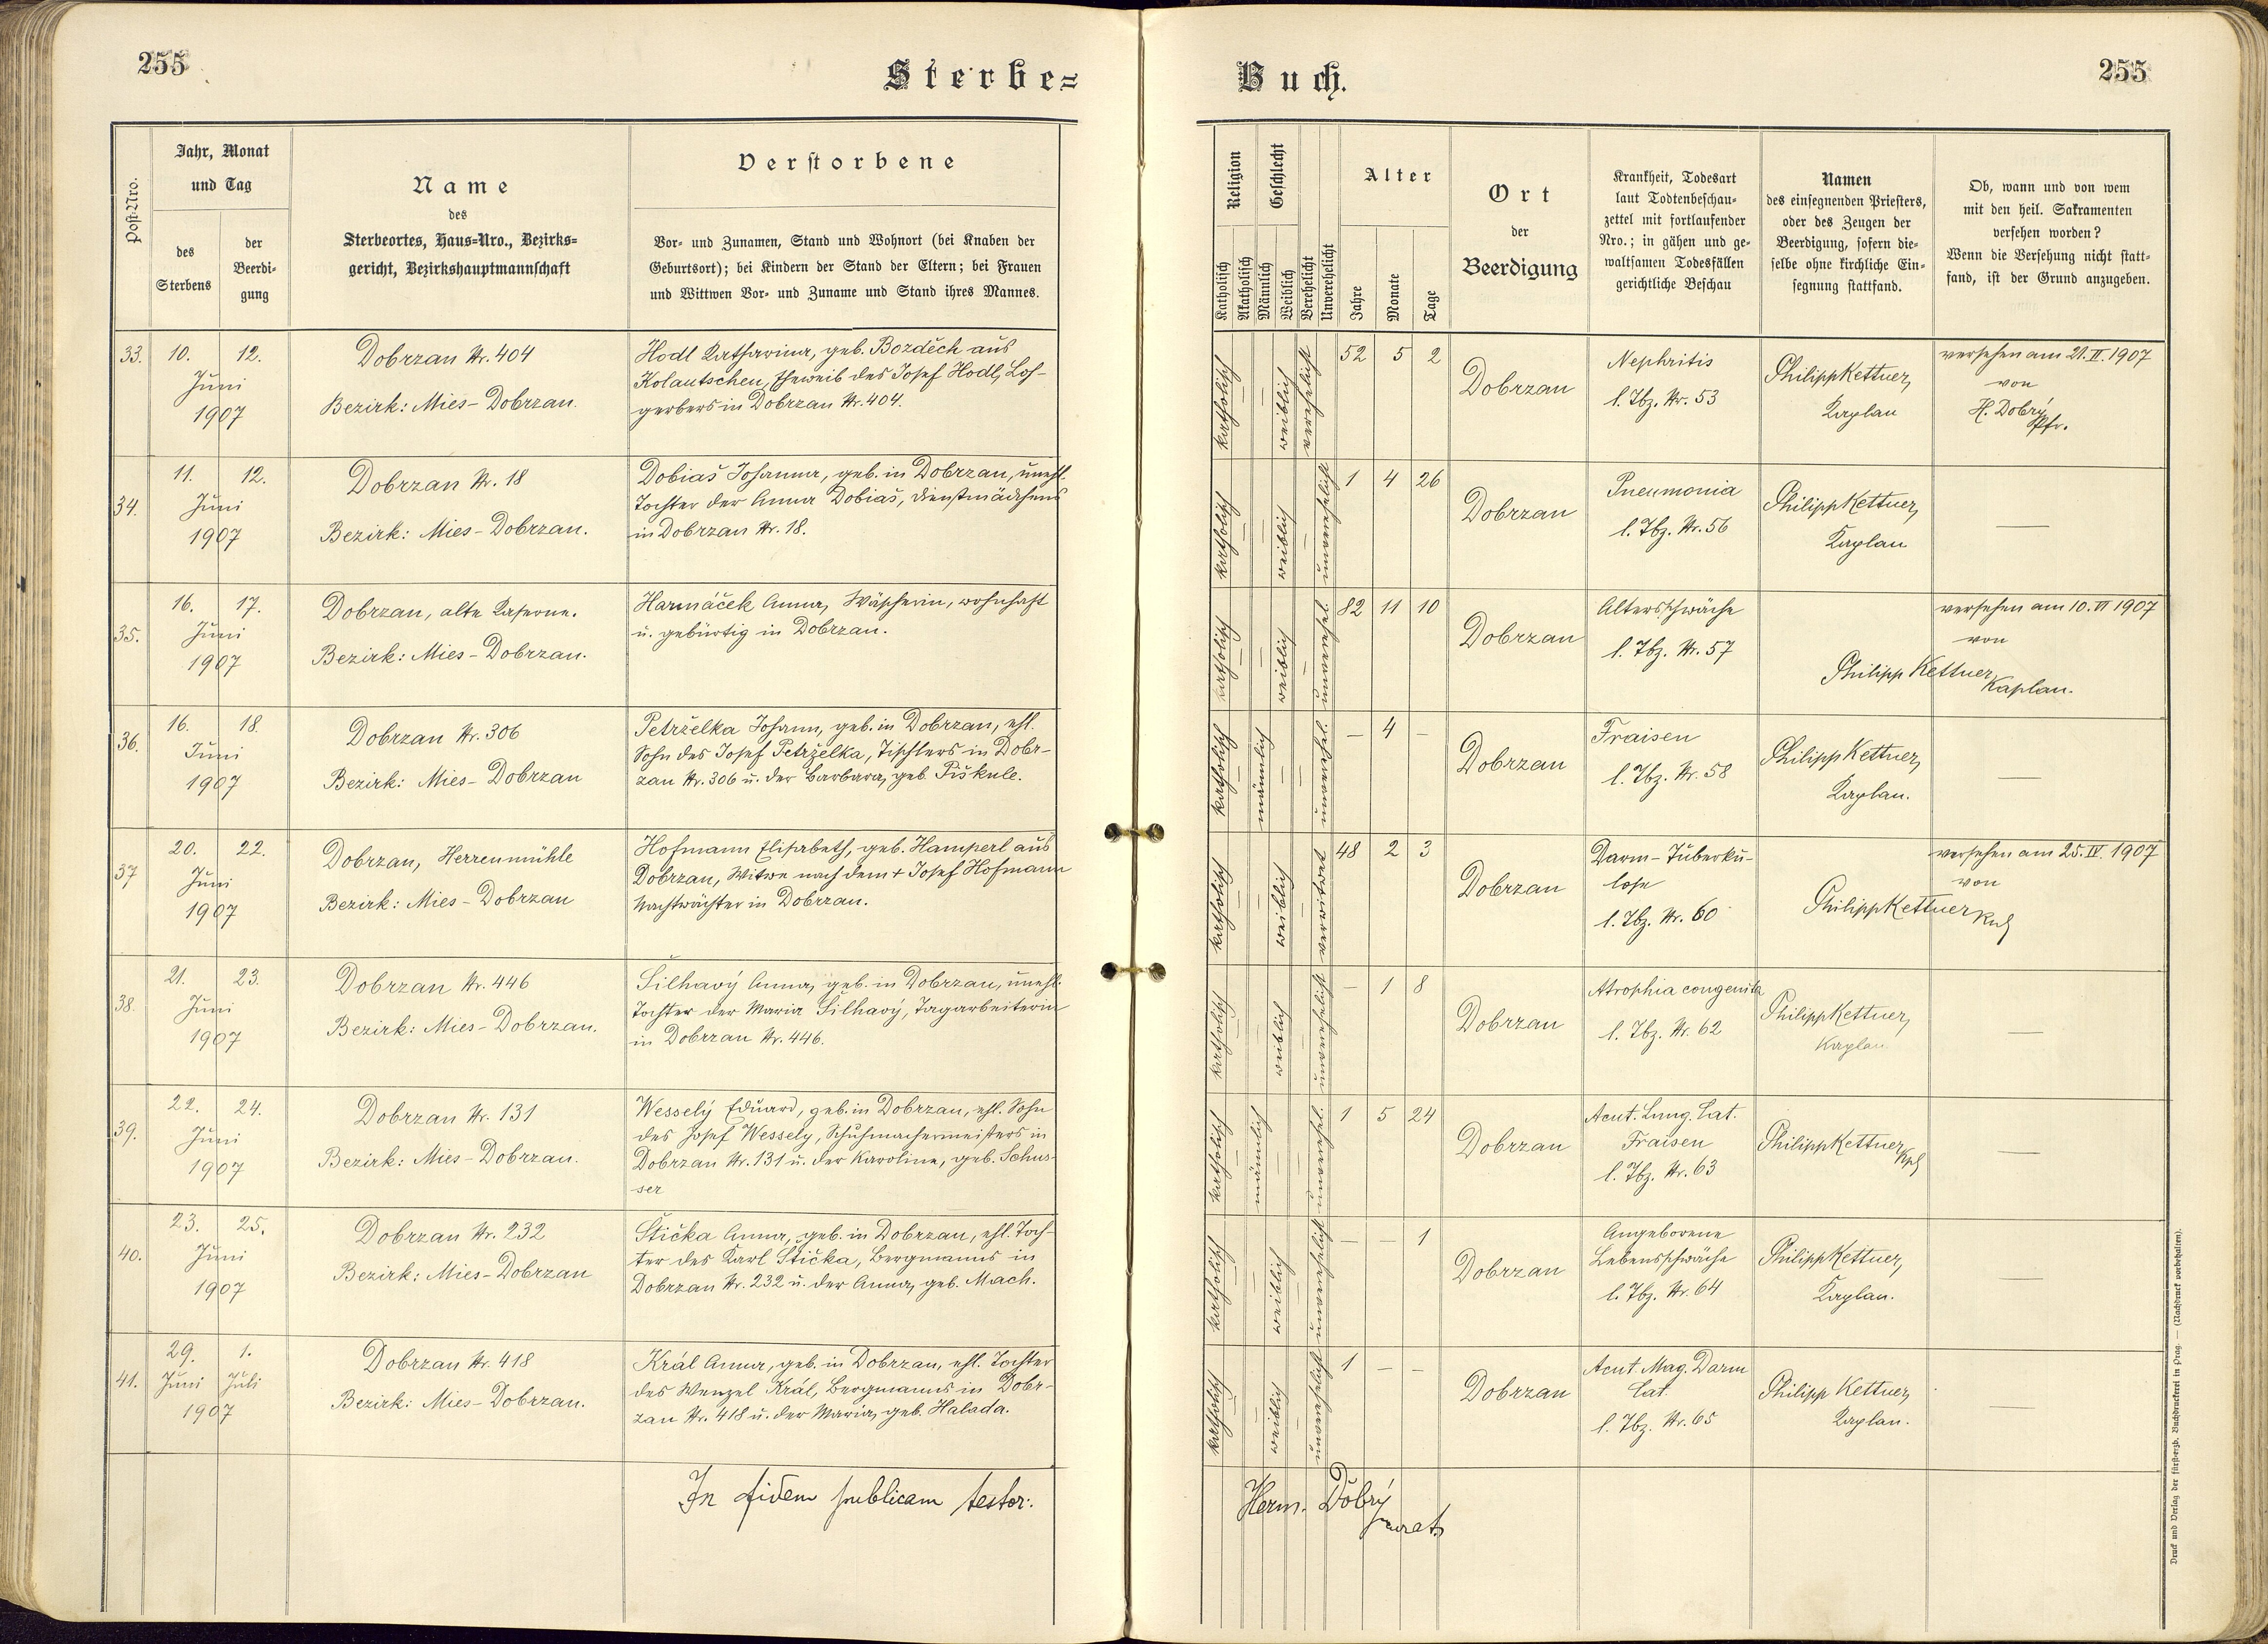 255
Sterbe=
Buch.
255
Post-Nro.
Jahr, Monat
und Tag
des
Sterbens
der
Beerdi=
gung
Name
des
Sterbeortes, Haus=Nro., Bezirks=
gericht, Bezirkshauptmannschaft
Verstorbene
Vor= und Zunamen, Stand und Wohnort (bei Knaben der
Geburtsort); bei Kindern der Stand der Eltern; bei Frauen
und Wittwen Vor= und Zuname und Stand ihres Mannes.
Religion
Katholisch
Akatholisch
Geschlecht
Männlich
Weiblich
Verehelicht
Unverehelicht
Alter
Jahre
Monate
Tage
Ort
der
Beerdigung
Krankheit, Todesart
laut Todtenbeschau=
zettel mit fortlaufender
Nro.; in gähen und ge=
waltsamen Todesfällen
gerichtliche Beschau
Namen
des einsegnenden Priesters,
oder des Zeugen der
Beerdigung, sofern die=
selbe ohne kirchliche Ein=
segnung stattfand.
Ob, wann und von wem
mit den heil. Sakramenten
versehen worden?
Wenn die Versehung nicht statt=
fand, ist der Grund anzugeben.
33. 10. 12.
Juni
1907
Dobrzan Nr. 404
Bezirk: Mies-Dobrzan.
Hodl Katharina, geb. Bozděch aus
Kolautschen, Eheweib des Josef Hodl, Loh-
gerbers in Dobrzan Nr. 404.
katholisch — — weiblich verehelicht
52 5 2
Dobrzan
Nephritis
l. Tbz. Nr. 53
Philipp Kettner,
Kaplan
versehen am 21. II. 1907
von
H. Dobrý
Pfr.
34. 11. 12.
Juni
1907
Dobrzan Nr. 18
Bezirk: Mies-Dobrzan.
Dobiaš Johanna, geb. in Dobrzan, unehl.
Tochter der Anna Dobiaš, Dienstmädchens
in Dobrzan Nr. 18.
katholisch — — weiblich — unverehelicht
1 4 26
Dobrzan
Pneumonia
l. Tbz. Nr. 56
Philipp Kettner,
Kaplan
—
35. 16. 17.
Juni
1907
Dobrzan, alte Kaserne.
Bezirk: Mies-Dobrzan.
Harmáček Anna, Wäscherin, wohnhaft
u. gebürtig in Dobrzan.
katholisch — — weiblich — unverehel.
82 11 10
Dobrzan
Altersschwäche
l. Tbz. Nr. 57
versehen am 10. VI 1907
von
Philipp Kettner,
Kaplan.
36. 16. 18.
Juni
1907
Dobrzan Nr. 306
Bezirk: Mies-Dobrzan
Petrželka Johann, geb. in Dobrzan, ehl.
Sohn des Josef Petrželka, Tischlers in Dobr-
zan Nr. 306 u. der Barbara, geb. Piškule.
katholisch — männlich — — unverehel.
— 4 —
Dobrzan
Fraisen
l. Tbz. Nr. 58
Philipp Kettner,
Kaplan.
—
37 20. 22.
Juni
1907
Dobrzan, Herrenmühle
Bezirk: Mies-Dobrzan
Hofmann Elisabeth, geb. Hamperl aus
Dobrzan, Witwe nach dem + Josef Hofmann
Nachtwächter in Dobrzan.
katholisch — — weiblich — verwitwet
48 2 3
Dobrzan
Darm-Tuberku-
lose
l. Tbz. Nr. 60
versehen am 25. IV. 1907
von
Philipp Kettner
38. 21. 23.
Juni
1907
Dobrzan Nr. 446
Bezirk: Mies-Dobrzan.
Šilhavý Anna, geb. in Dobrzan, unehl.
Tochter der Maria Šilhavý, Tagarbeiterin
in Dobrzan Nr. 446.
katholisch — — weiblich — unverehelicht
— 1 8
Dobrzan
Atrophia congenita
l. Tbz. Nr. 62
Philipp Kettner,
Kaplan
—
39. 22. 24.
Juni
1907
Dobrzan Nr. 131
Bezirk: Mies-Dobrzan.
Wesselý Eduard, geb. in Dobrzan, ehl. Sohn
des Josef Wessely, Schuhmachermeisters in
Dobrzan Nr. 131 u. der Karoline, geb. Schus-
ser
katholisch — männlich — — unverehel.
1 5 24
Dobrzan
Acut. Lung. Cat.
Fraisen
l. Tbz. Nr. 63
Philipp Kettner
Kpl
—
40. 23. 25.
Juni
1907
Dobrzan Nr. 232
Bezirk: Mies-Dobrzan
Štička Anna, geb. in Dobrzan, ehl. Toch-
ter des Karl Štička, Bergmanns in
Dobrzan Nr. 232 u. der Anna, geb. Mach.
katholisch — — weiblich — unverehelicht
— — 1
Dobrzan
Angeborene
Lebensschwäche
l. Tbz. Nr. 64
Philipp Kettner,
Kaplan.
—
41. 29. 1.
Juni Juli
1907
Dobrzan Nr. 418
Bezirk: Mies-Dobrzan.
Král Anna, geb. in Dobrzan, ehl. Tochter
des Wenzel Král, Bergmanns in Dobr-
zan Nr. 418 u. der Maria, geb. Halada.
katholisch — — weiblich — unverehelicht
1 — —
Dobrzan
Acut. Mag. Darm
Cat.
l. Tbz. Nr. 65
Philipp Kettner,
Kaplan.
—
In fidem publicam testor:
Herm. Dobrý
Druck und Verlag der fürsterzb. Buchdruckerei in Prag. — (Nachdruck vorbehalten).